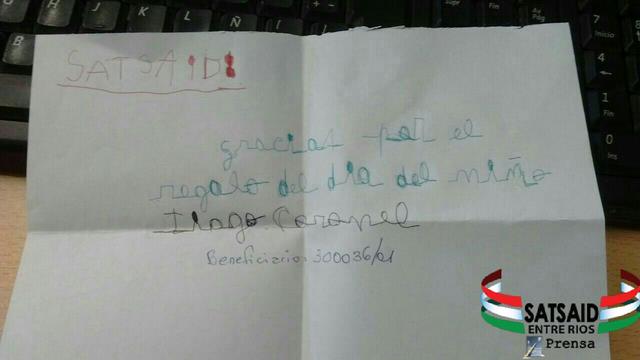 SATSAID!
gracias por el
regalo del dia del niño
Iñago Coronel
Beneficiario: 300036/01
SATSAID
ENTRE RIOS
Prensa